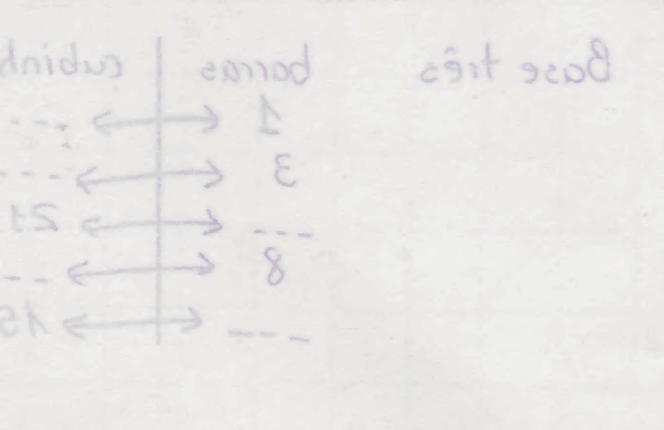 Base três barras cubinh
1 ⟷ ---
3 ⟷ ---
--- ⟷ 21
8 ⟷ ---
--- ⟷ 15